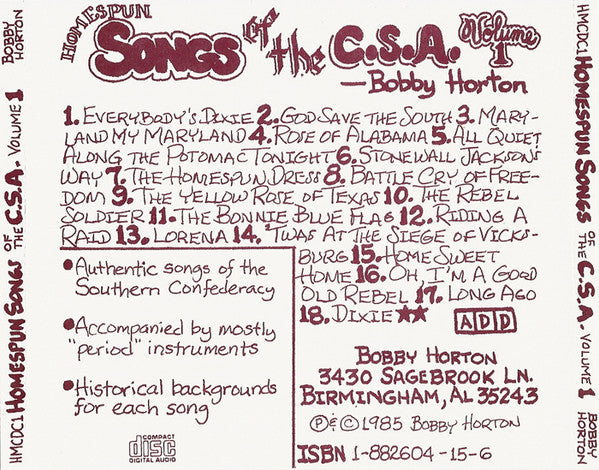 HOMESPUN
SONGS of the C.S.A. Volume 1
—Bobby Horton
1. EVERYBODY'S DIXIE 2. GOD SAVE THE SOUTH 3. MARY-
LAND MY MARYLAND 4. ROSE OF ALABAMA 5. ALL QUIET
ALONG THE POTOMAC TONIGHT 6. STONEWALL JACKSON'S
WAY 7. THE HOMESPUN DRESS 8. BATTLE CRY OF FREE-
DOM 9. THE YELLOW ROSE OF TEXAS 10. THE REBEL
SOLDIER 11. THE BONNIE BLUE FLAG 12. RIDING A
RAID 13. LORENA 14. 'TWAS AT THE SIEGE OF VICKS-
BURG 15. HOME SWEET
HOME 16. OH, I'M A GOOD
OLD REBEL 17. LONG AGO
18. DIXIE ★★ ADD
• Authentic songs of the
Southern Confederacy
• Accompanied by mostly
"period" instruments
• Historical backgrounds
for each song
COMPACT
disc
DIGITAL AUDIO
BOBBY HORTON
3430 SAGEBROOK LN.
BIRMINGHAM, AL 35243
℗ & © 1985 BOBBY HORTON
ISBN 1-882604-15-6
HMCDC1 HOMESPUN SONGS OF THE C.S.A. • VOLUME 1 BOBBY HORTON
HMCDC1 HOMESPUN SONGS OF THE C.S.A. • VOLUME 1 BOBBY HORTON